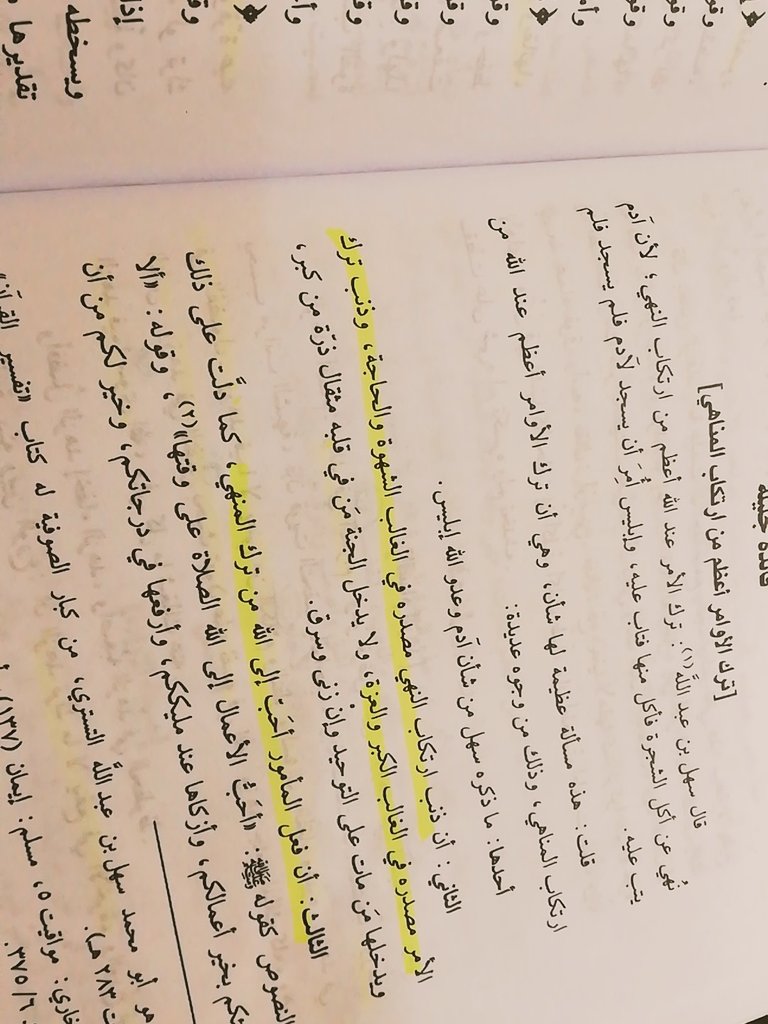 فائدة جليلة
[ترك الأوامر أعظم من ارتكاب المناهي]
قال سهل بن عبد اللَّه(١): ترك الأمر عند الله أعظم من ارتكاب النهي؛ لأن آدم
نُهي عن أكل الشجرة فأكل منها فتاب عليه، وإبليس أُمِرَ أن يسجد لآدم فلم يسجد فلم
يتب عليه.
قلت: هذه مسألة عظيمة لها شأن، وهي أن ترك الأوامر أعظم عند الله من
ارتكاب المناهي، وذلك من وجوه عديدة:
أحدها: ما ذكره سهل من شأن آدم وعدو الله إبليس.
الثاني: أن ذنب ارتكاب النهي مصدره في الغالب الشهوة والحاجة، وذنب ترك
الأمر مصدره في الغالب الكبر والعزة، ولا يدخل الجنة مَن في قلبه مثقال ذرّة من كبر،
ويدخلها مَن مات على التوحيد وإن زنى وسرق.
الثالث: أن فعل المأمور أحَبّ إلى الله من ترك المنهي، كما دلّت على ذلك
النصوص كقوله ﷺ: «أحَبُّ الأعمال إلى الله الصلاة على وقتها»(٢)، وقوله: «ألا
بخير أعمالكم، وأزكاها عند مليككم، وأرفعها في درجاتكم، وخير لكم من أن
هو أبو محمد سهل بن عبد اللَّه التستري، من كبار الصوفية له كتاب «تفسير القرآن»
٢٨٣ هـ).
مواقيت ٥، مسلم: إيمان (١٣٧)
٣٧٥/٦.
إذا
ويسخطه
تقديرها